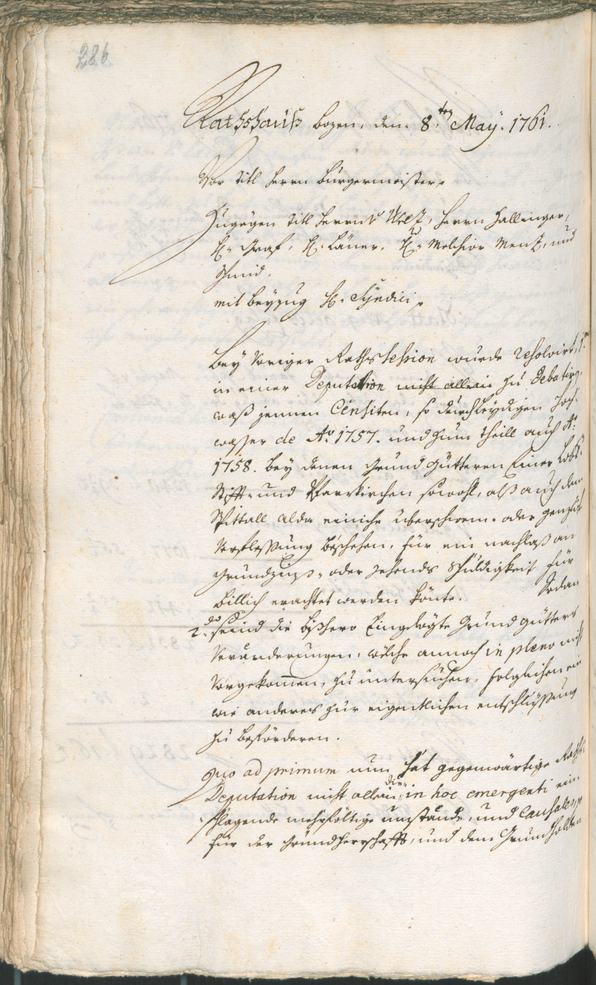 286
Rathshauß bozen, den 8.ten May. 1761.
Vor titl Herrn Burgermeister.
Zugegen titl Herrn v. Welz, Herrn Hallinger,
H. Graf, H. Laner, H. Melchior Menz, und
Gmid.
mit beyzug H. Syndici.
Bey voriger Raths Session wurde resolvirt, 1.mo
in einer Deputation nicht allein zu Debatirn,
waß jennen Censiten, so durch leydigen
wasser de Ao 1757. und zum theille auch Ao:
1758. bey denen Grund Güttern Einer Löbl.
Stüfft- und Pfarrkirchen sowohl, alß auch dem
Spittall alda einiche überschwem- oder
beschehen, für ein nachlaß an
Grundzünß, oder zehends Schuldigkeit für
billich erachtet werden könte. Sodan
2.do seind die bißhero Eingelegte Grund Gütters
Veränderungen, welche annoch in pleno nicht
vorgekomen, zu untersuchen, folglichen ein
wie anderes zur eigentlichen entschlüssung
zu befördern.
Quo ad primum nun hat gegenwärtige Raths
Deputation nicht allein die in hoc emergenti ein
schlagende mehrfältige umstände, und
für der Grundherrschafft, und dem Grundholden